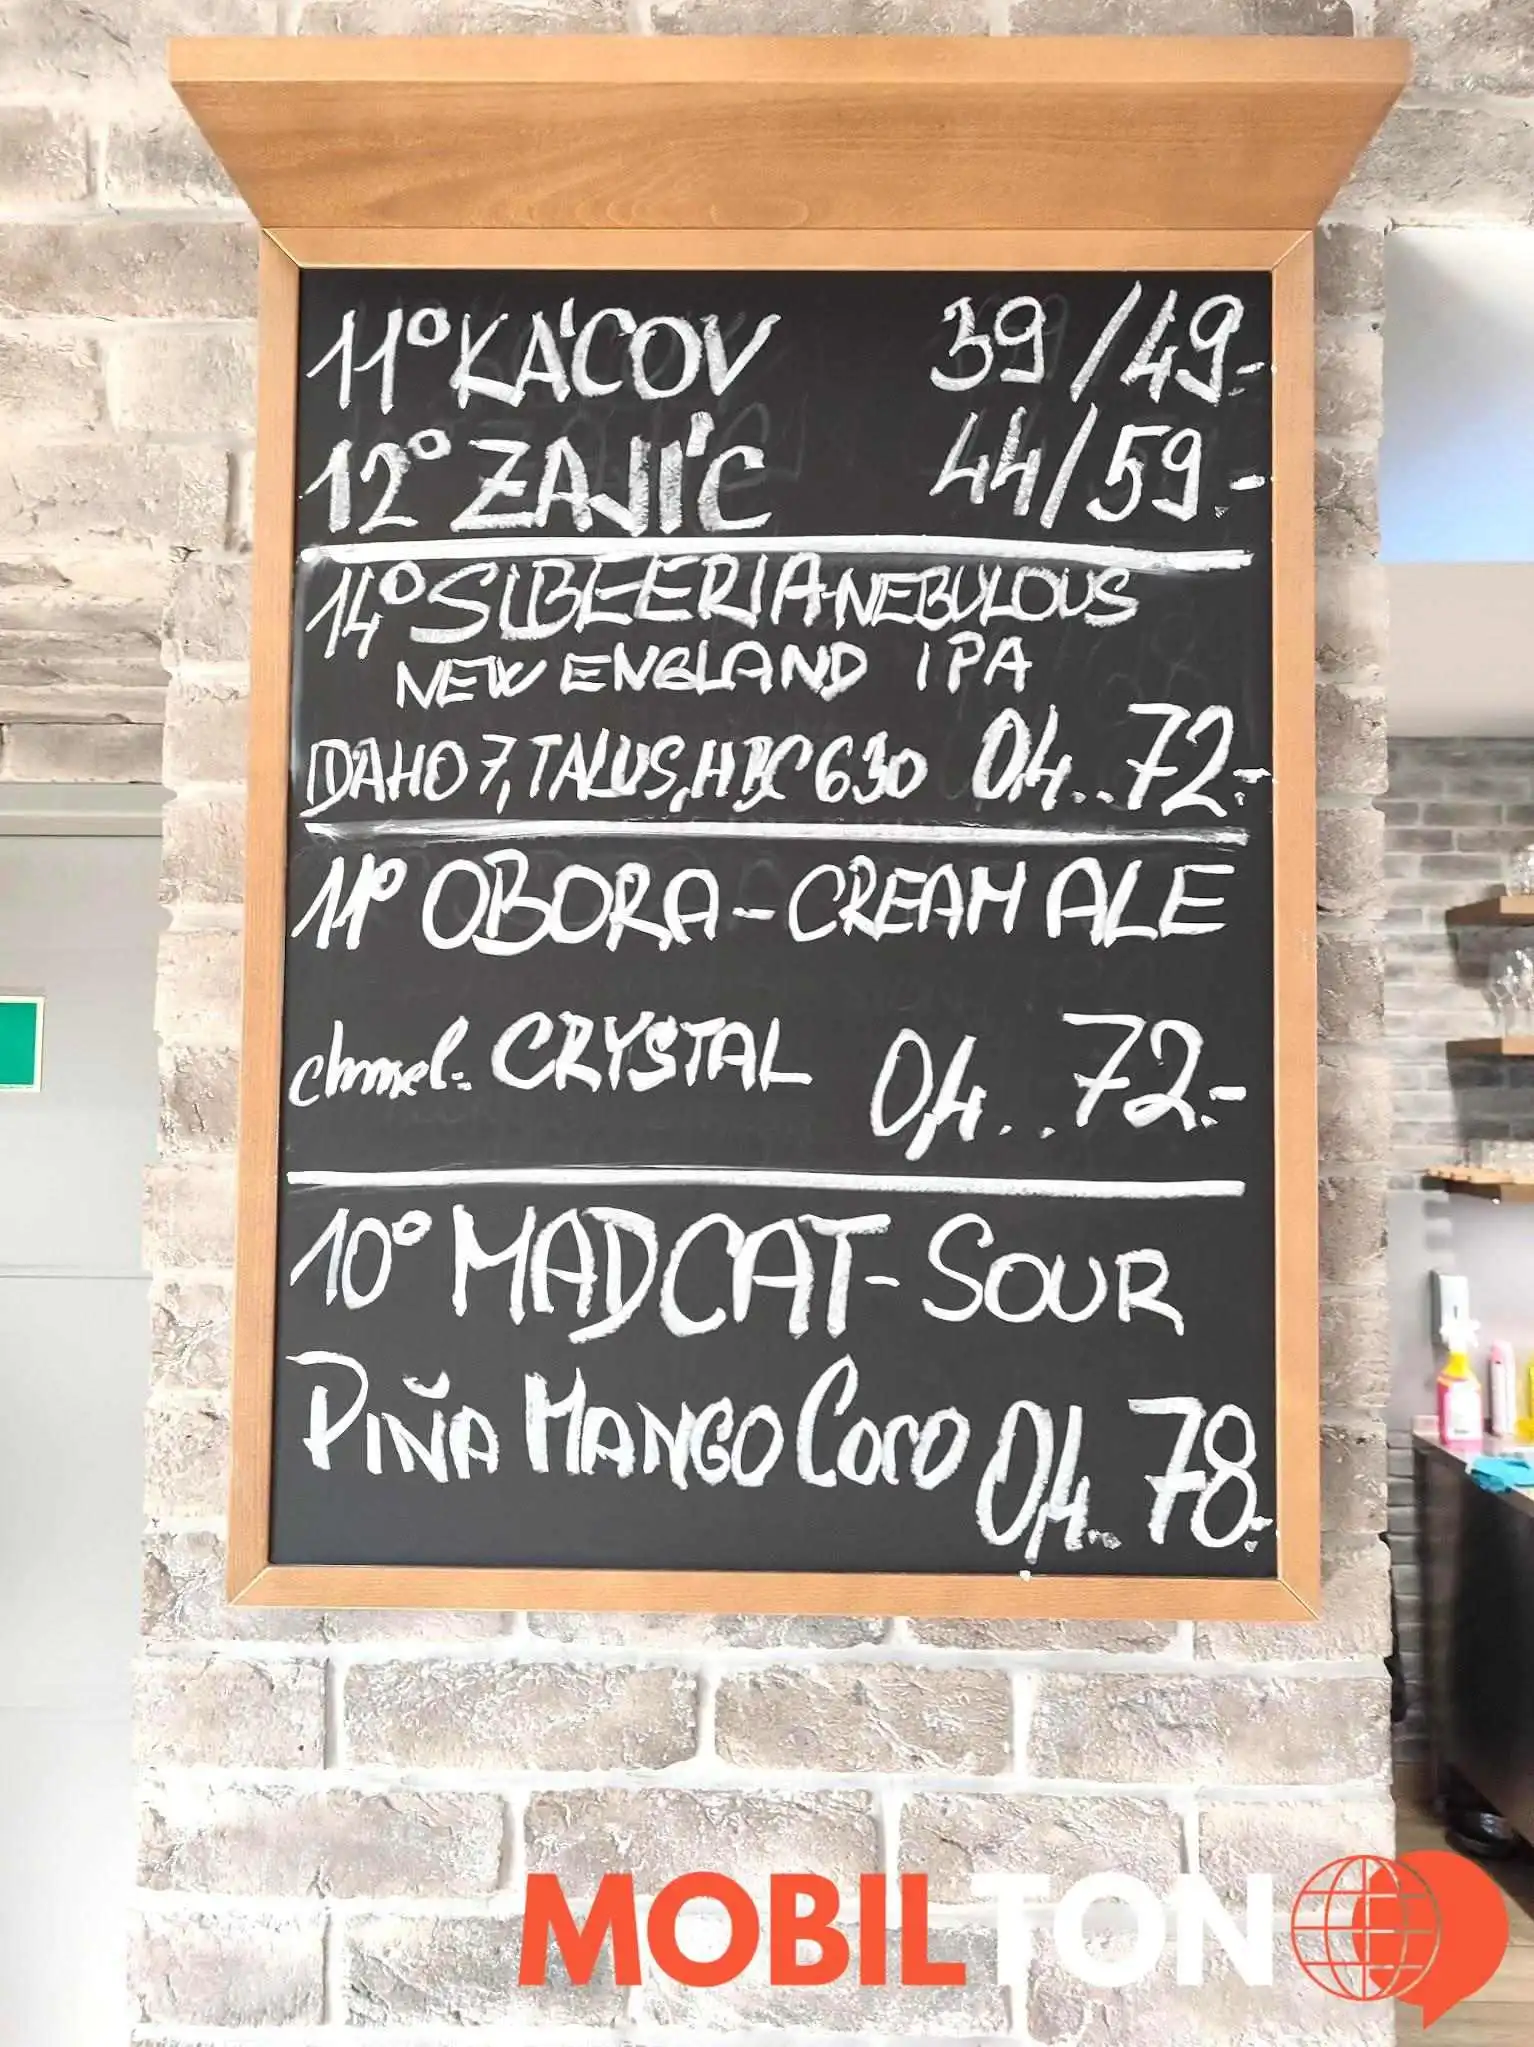 11° KÁCOV 39/49.-
12° ZAJÍC 44/59.-
14° SIBEERIA-NEBULOUS
NEW ENGLAND IPA
IDAHO 7, TALUS, HBC 630 0,4..72.-
11° OBORA-CREAM ALE
chmel: CRYSTAL 0,4..72.-
10° MADCAT-SOUR
PIŇA MANGO COCO 0,4..78.-
MOBILTON